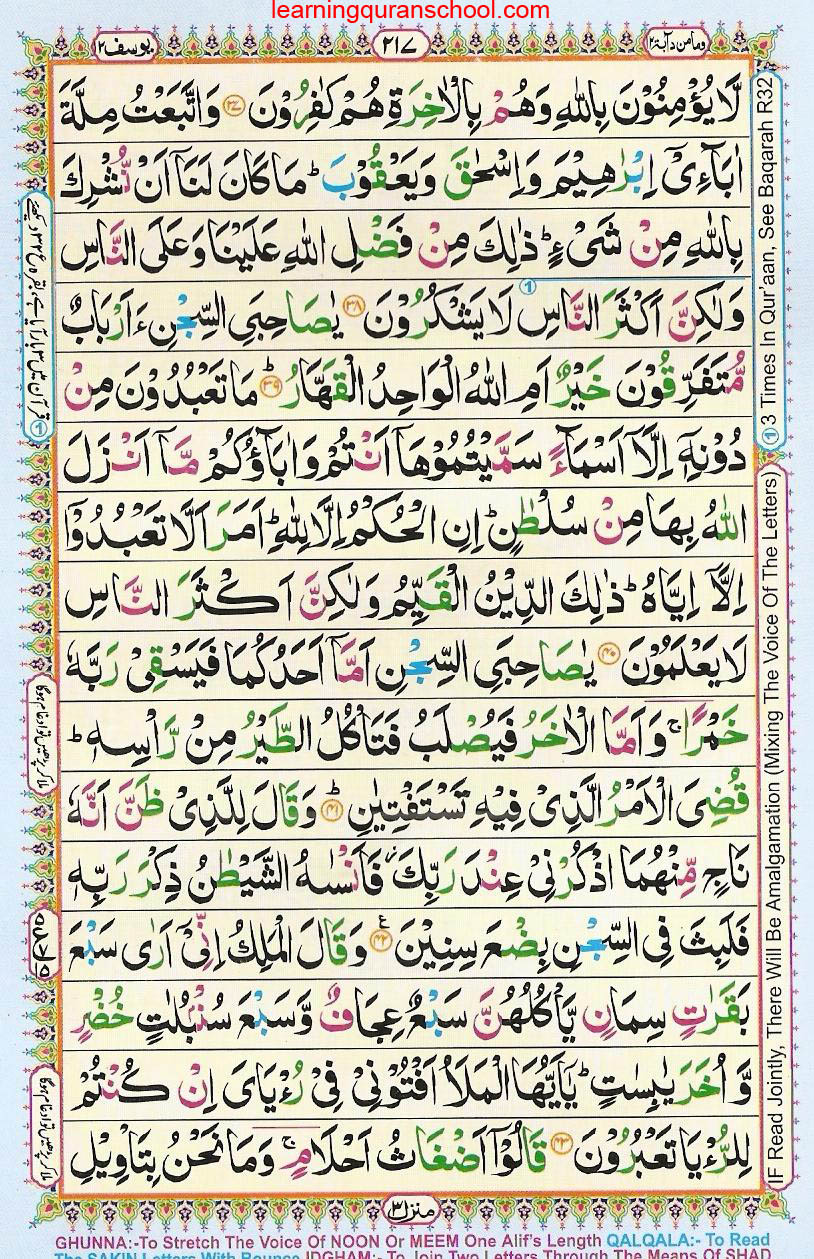 learningquranschool.com
وما من دآبة ١٢
٢١٧
یوسف ١٢
لَّا یُؤْمِنُوْنَ بِاللّٰهِ وَهُمْ بِالْاٰخِرَةِ هُمْ كٰفِرُوْنَ ﴿٣٧﴾ وَاتَّبَعْتُ مِلَّةَ
اٰبَآءِیْۤ اِبْرٰهِیْمَ وَاِسْحٰقَ وَیَعْقُوْبَ ؕ مَا كَانَ لَنَاۤ اَنْ نُّشْرِكَ
بِاللّٰهِ مِنْ شَیْءٍ ؕ ذٰلِكَ مِنْ فَضْلِ اللّٰهِ عَلَیْنَا وَعَلَی النَّاسِ
وَلٰكِنَّ اَكْثَرَ النَّاسِ لَا یَشْكُرُوْنَ ﴿٣٨﴾ یٰصَاحِبَیِ السِّجْنِ ءَاَرْبَابٌ
مُّتَفَرِّقُوْنَ خَیْرٌ اَمِ اللّٰهُ الْوَاحِدُ الْقَهَّارُ ؕ ﴿٣٩﴾ مَا تَعْبُدُوْنَ مِنْ
دُوْنِهٖۤ اِلَّاۤ اَسْمَآءً سَمَّیْتُمُوْهَاۤ اَنْتُمْ وَاٰبَآؤُكُمْ مَّاۤ اَنْزَلَ
اللّٰهُ بِهَا مِنْ سُلْطٰنٍ ؕ اِنِ الْحُكْمُ اِلَّا لِلّٰهِ ؕ اَمَرَ اَلَّا تَعْبُدُوْۤا
اِلَّاۤ اِیَّاهُ ؕ ذٰلِكَ الدِّیْنُ الْقَیِّمُ وَلٰكِنَّ اَكْثَرَ النَّاسِ
لَا یَعْلَمُوْنَ ﴿٤٠﴾ یٰصَاحِبَیِ السِّجْنِ اَمَّاۤ اَحَدُكُمَا فَیَسْقِیْ رَبَّهٗ
خَمْرًا ۚ وَاَمَّا الْاٰخَرُ فَیُصْلَبُ فَتَاْكُلُ الطَّیْرُ مِنْ رَّاْسِهٖ ؕ
قُضِیَ الْاَمْرُ الَّذِیْ فِیْهِ تَسْتَفْتِیٰنِ ؕ ﴿٤١﴾ وَقَالَ لِلَّذِیْ ظَنَّ اَنَّهٗ
نَاجٍ مِّنْهُمَا اذْكُرْنِیْ عِنْدَ رَبِّكَ ؗ فَاَنْسٰىهُ الشَّیْطٰنُ ذِكْرَ رَبِّهٖ
فَلَبِثَ فِی السِّجْنِ بِضْعَ سِنِیْنَ ﴿٤٢﴾ ع وَقَالَ الْمَلِكُ اِنِّیْۤ اَرٰی سَبْعَ
بَقَرٰتٍ سِمَانٍ یَّاْكُلُهُنَّ سَبْعٌ عِجَافٌ وَّسَبْعَ سُنْۢبُلٰتٍ خُضْرٍ
وَّاُخَرَ یٰبِسٰتٍ ؕ یٰۤاَیُّهَا الْمَلَاُ اَفْتُوْنِیْ فِیْ رُءْیَایَ اِنْ كُنْتُمْ
لِلرُّءْیَا تَعْبُرُوْنَ ﴿٤٣﴾ قَالُوْۤا اَضْغَاثُ اَحْلَامٍ ۚ وَمَا نَحْنُ بِتَاْوِیْلِ
① 3 Times In Qur'aan, See Baqarah R32
IF Read Jointly, There Will Be Amalgamation (Mixing The Voice Of The Letters)
ملا کر پڑھیں تو ادغام ہوگا
ملا کر پڑھیں تو ادغام ہوگا
منزل ٣
GHUNNA:-To Stretch The Voice Of NOON Or MEEM One Alif's Length QALQALA:- To Read
The SAKIN Letters With Bounce IDGHAM:- To Join Two Letters Through The Means Of SHAD